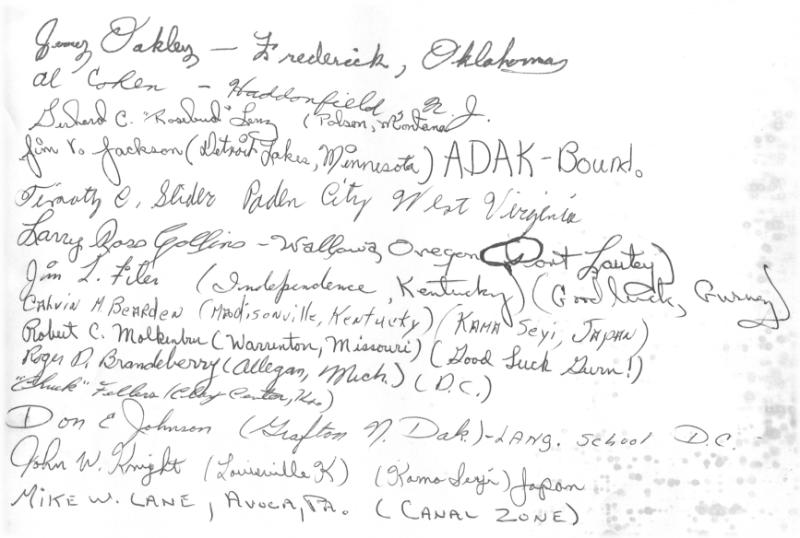 Jerry Oakley — Frederick, Oklahoma
Al Cohen - Haddonfield N.J.
C. "Rosebud" Lenz (Polson, Montana
Jim V. Jackson (Detroit Lakes, Minnesota) ADAK-Bound.
Timothy C. Slider Paden City West Virginia
Larry Ross Gollins - Wallowa Oregon
Jim L. Filer (Independence, Kentucky) (Good luck, Gurney)
CALVIN H. BEARDEN (MADISONVILLE, KENTUCKY) (KAMA SEYI, JAPAN)
Robert C. Molkenbur (Warrenton, Missouri) (Good Luck Gurn!)
Roger D. Brandeberry (Allegan, Mich.) (D.C.)
"Chuck" Fellers (Clay Center, Ks.)
Don E Johnson (Grafton N. Dak.) - LANG. School D.C.
John W. Knight (Louisville K) (Kama Seyi) Japan
MIKE W. LANE, AVOCA, PA. (CANAL ZONE)